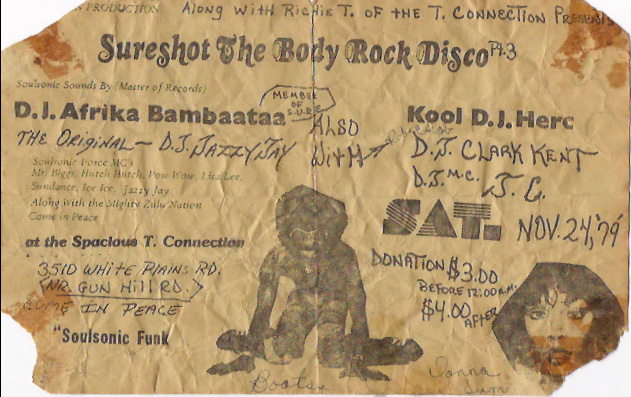 N PRODUCTION
ALONG WITH RICHIE T. OF THE T. CONNECTION PRESENTS
Sureshot The Body Rock Disco Pt.3
Soulsonic Sounds By (Master of Records)
D.J. Afrika Bambaataa
MEMBER OF S.U.R.E.
THE ORIGINAL - D.J. JAZZY JAY
Soulsonic Force MC's
Mr. Biggs, Hutch Hutch, Pow Wow, Lisa Lee,
Sundance, Ice Ice, Jazzy Jay
Along With the Mighty Zulu Nation
Come in Peace
ALSO WITH
Kool D.J. Herc
D.J. CLARK KENT
D.J. M.C. J.C.
SAT. NOV. 24, '79'
at the Spacious T. Connection
3510 WHITE PLAINS RD.
NR. GUN HILL RD.
COME IN PEACE
"Soulsonic Funk
DONATION $3.00
BEFORE 12:00 A.M.
$4.00 AFTER
Boots
Donna
Sum